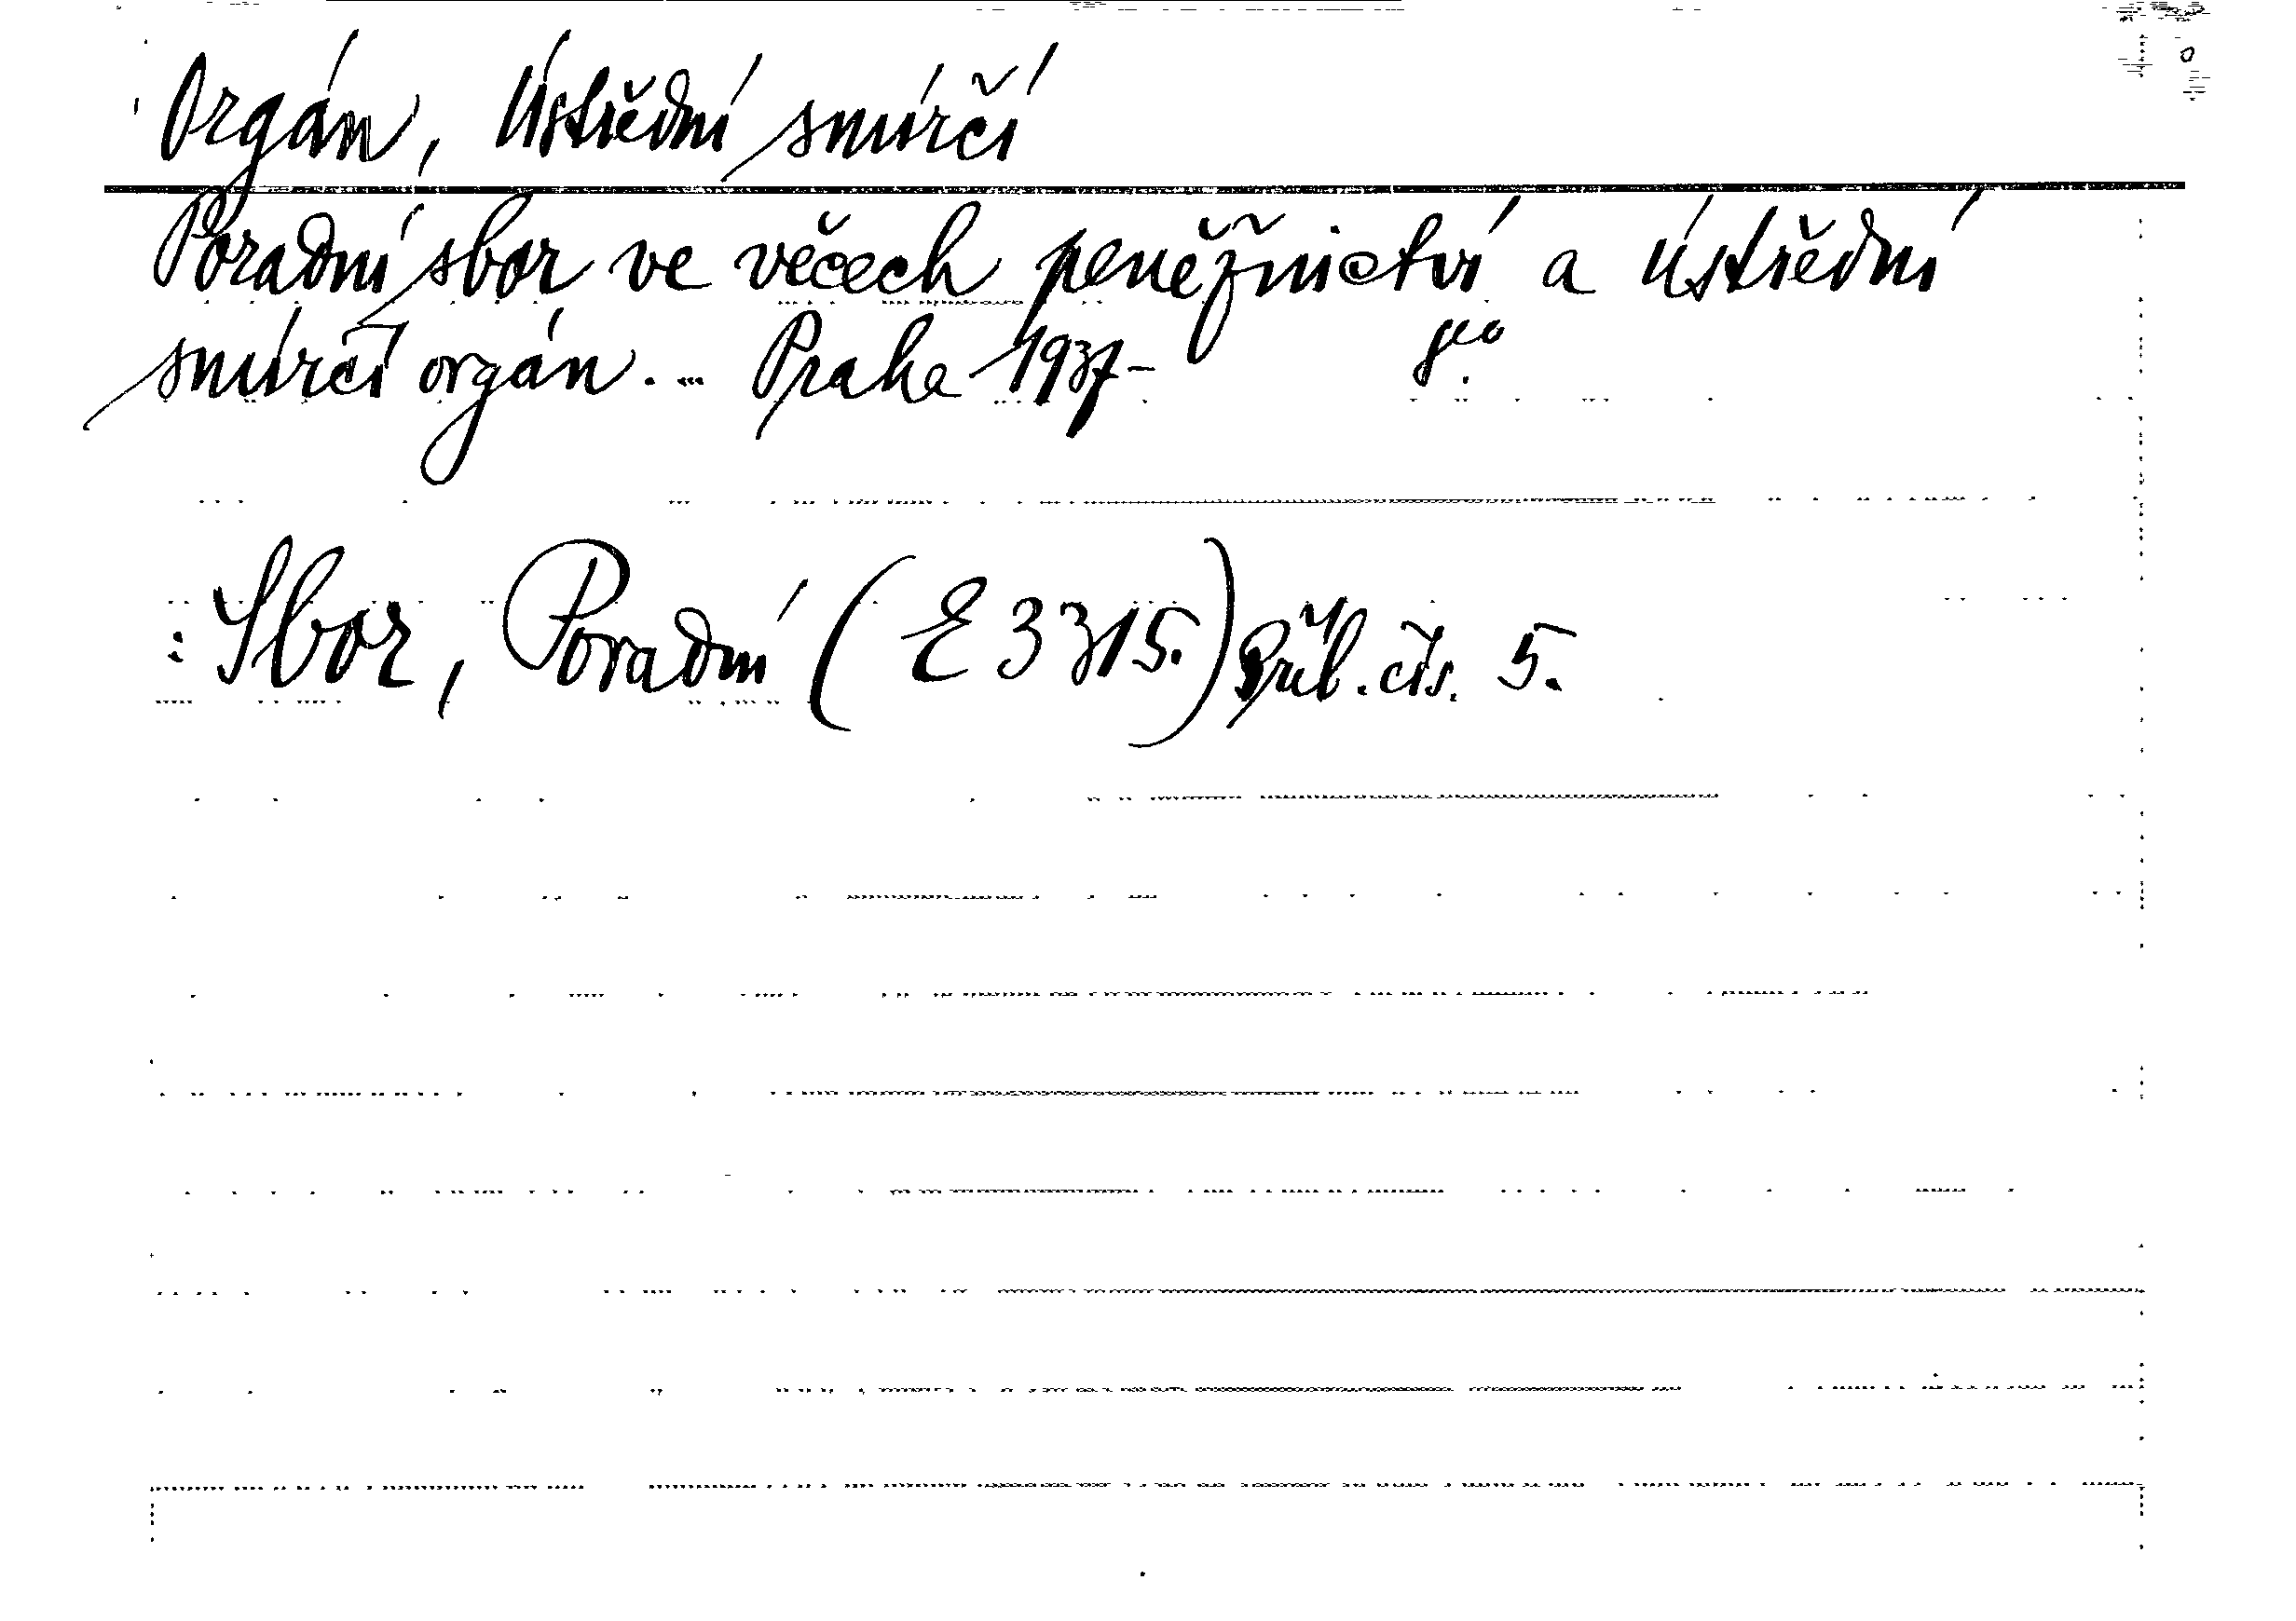 Orgán, Ústřední smírčí
Poradní sbor ve věcech peněžnictví a ústřední
smírčí orgán. ... Praha 1937- 8°.
: Sbor, Poradní (E 3315.) Průb. čís. 5.